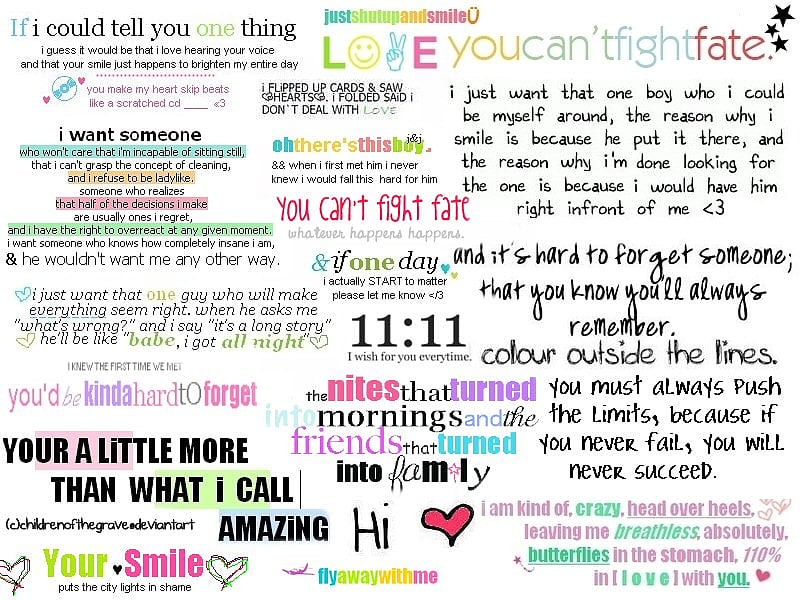 If i could tell you one thing
i guess it would be that i love hearing your voice
and that your smile just happens to brighten my entire day
you make my heart skip beats
like a scratched cd ____ <3
i want someone
who won't care that i'm incapable of sitting still,
that i can't grasp the concept of cleaning,
and i refuse to be ladylike.
someone who realizes
that half of the decisions i make
are usually ones i regret,
and i have the right to overreact at any given moment.
i want someone who knows how completely insane i am,
& he wouldn't want me any other way.
i just want that one guy who will make
everything seem right. when he asks me
"what's wrong?" and i say "it's a long story"
he'll be like "babe, i got all night"
I KNEW THE FIRST TIME WE MET
you'd be kinda hard tO forget
YOUR A LiTTLE MORE
THAN WHAT i CALL
AMAZiNG
(c)childrenofthegrave@deviantart
Your ♥ Smile
puts the city lights in shame
justshutupandsmileÜ
LOVE
i FLiPPED UP CARDS & SAW
♡HEARTS♡. i FOLDED SAiD i
DON`T DEAL WiTH LOVE
ohthere'sthisboy.
j&j.
&& when i first met him i never
knew i would fall this hard for him
you can't fight fate
whatever happens happens.
& if one day.
i actually START to matter
please let me know </3
11:11
I wish for you everytime.
the nites that turned
into mornings and the
friends that turned
into family
Hi
flyawaywithme
you can't fight fate.
i just want that one boy who i could
be myself around, the reason why i
smile is because he put it there, and
the reason why i'm done looking for
the one is because i would have him
right infront of me <3
and it's hard to forget someone;
that you know you'll always
remember.
colour outside the lines.
you must always push
the limits, because if
you never fail, you will
never succeed.
i am kind of, crazy, head over heels,
leaving me breathless, absolutely,
butterflies in the stomach, 110%
in [ l o v e ] with you.